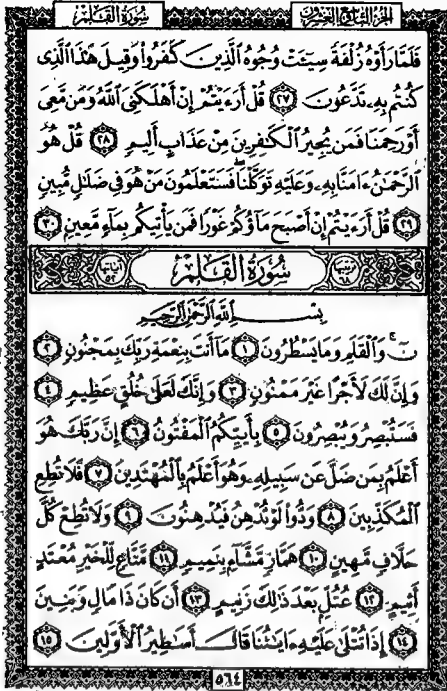 الجزء التاسع والعشرون
سورة القلم
فَلَمَّا رَأَوْهُ زُلْفَةً سِيٓـَٔتْ وُجُوهُ ٱلَّذِينَ كَفَرُوا۟ وَقِيلَ هَٰذَا ٱلَّذِى
كُنتُم بِهِۦ تَدَّعُونَ ٢٧ قُلْ أَرَءَيْتُمْ إِنْ أَهْلَكَنِىَ ٱللَّهُ وَمَن مَّعِىَ
أَوْ رَحِمَنَا فَمَن يُجِيرُ ٱلْكَٰفِرِينَ مِنْ عَذَابٍ أَلِيمٍ ٢٨ قُلْ هُوَ
ٱلرَّحْمَٰنُ ءَامَنَّا بِهِۦ وَعَلَيْهِ تَوَكَّلْنَا ۖ فَسَتَعْلَمُونَ مَنْ هُوَ فِى ضَلَٰلٍ مُّبِينٍ
٢٩ قُلْ أَرَءَيْتُمْ إِنْ أَصْبَحَ مَآؤُكُمْ غَوْرًا فَمَن يَأْتِيكُم بِمَآءٍ مَّعِينٍۭ ٣٠
ترتيبها ٦٨ سُورَةُ القَلَمِ آياتها ٥٢
بِسْمِ ٱللَّهِ ٱلرَّحْمَٰنِ ٱلرَّحِيمِ
نٓ ۚ وَٱلْقَلَمِ وَمَا يَسْطُرُونَ ١ مَآ أَنتَ بِنِعْمَةِ رَبِّكَ بِمَجْنُونٍ ٢
وَإِنَّ لَكَ لَأَجْرًا غَيْرَ مَمْنُونٍ ٣ وَإِنَّكَ لَعَلَىٰ خُلُقٍ عَظِيمٍ ٤
فَسَتُبْصِرُ وَيُبْصِرُونَ ٥ بِأَييِّكُمُ ٱلْمَفْتُونُ ٦ إِنَّ رَبَّكَ هُوَ
أَعْلَمُ بِمَن ضَلَّ عَن سَبِيلِهِۦ وَهُوَ أَعْلَمُ بِٱلْمُهْتَدِينَ ٧ فَلَا تُطِعِ
ٱلْمُكَذِّبِينَ ٨ وَدُّوا۟ لَوْ تُدْهِنُ فَيُدْهِنُونَ ٩ وَلَا تُطِعْ كُلَّ
حَلَّافٍ مَّهِينٍ ١٠ هَمَّازٍ مَّشَّآءٍۭ بِنَمِيمٍ ١١ مَّنَّاعٍ لِّلْخَيْرِ مُعْتَدٍ
أَثِيمٍ ١٢ عُتُلٍّۭ بَعْدَ ذَٰلِكَ زَنِيمٍ ١٣ أَن كَانَ ذَا مَالٍ وَبَنِينَ
١٤ إِذَا تُتْلَىٰ عَلَيْهِ ءَايَٰتُنَا قَالَ أَسَٰطِيرُ ٱلْأَوَّلِينَ ١٥
٥٦٤